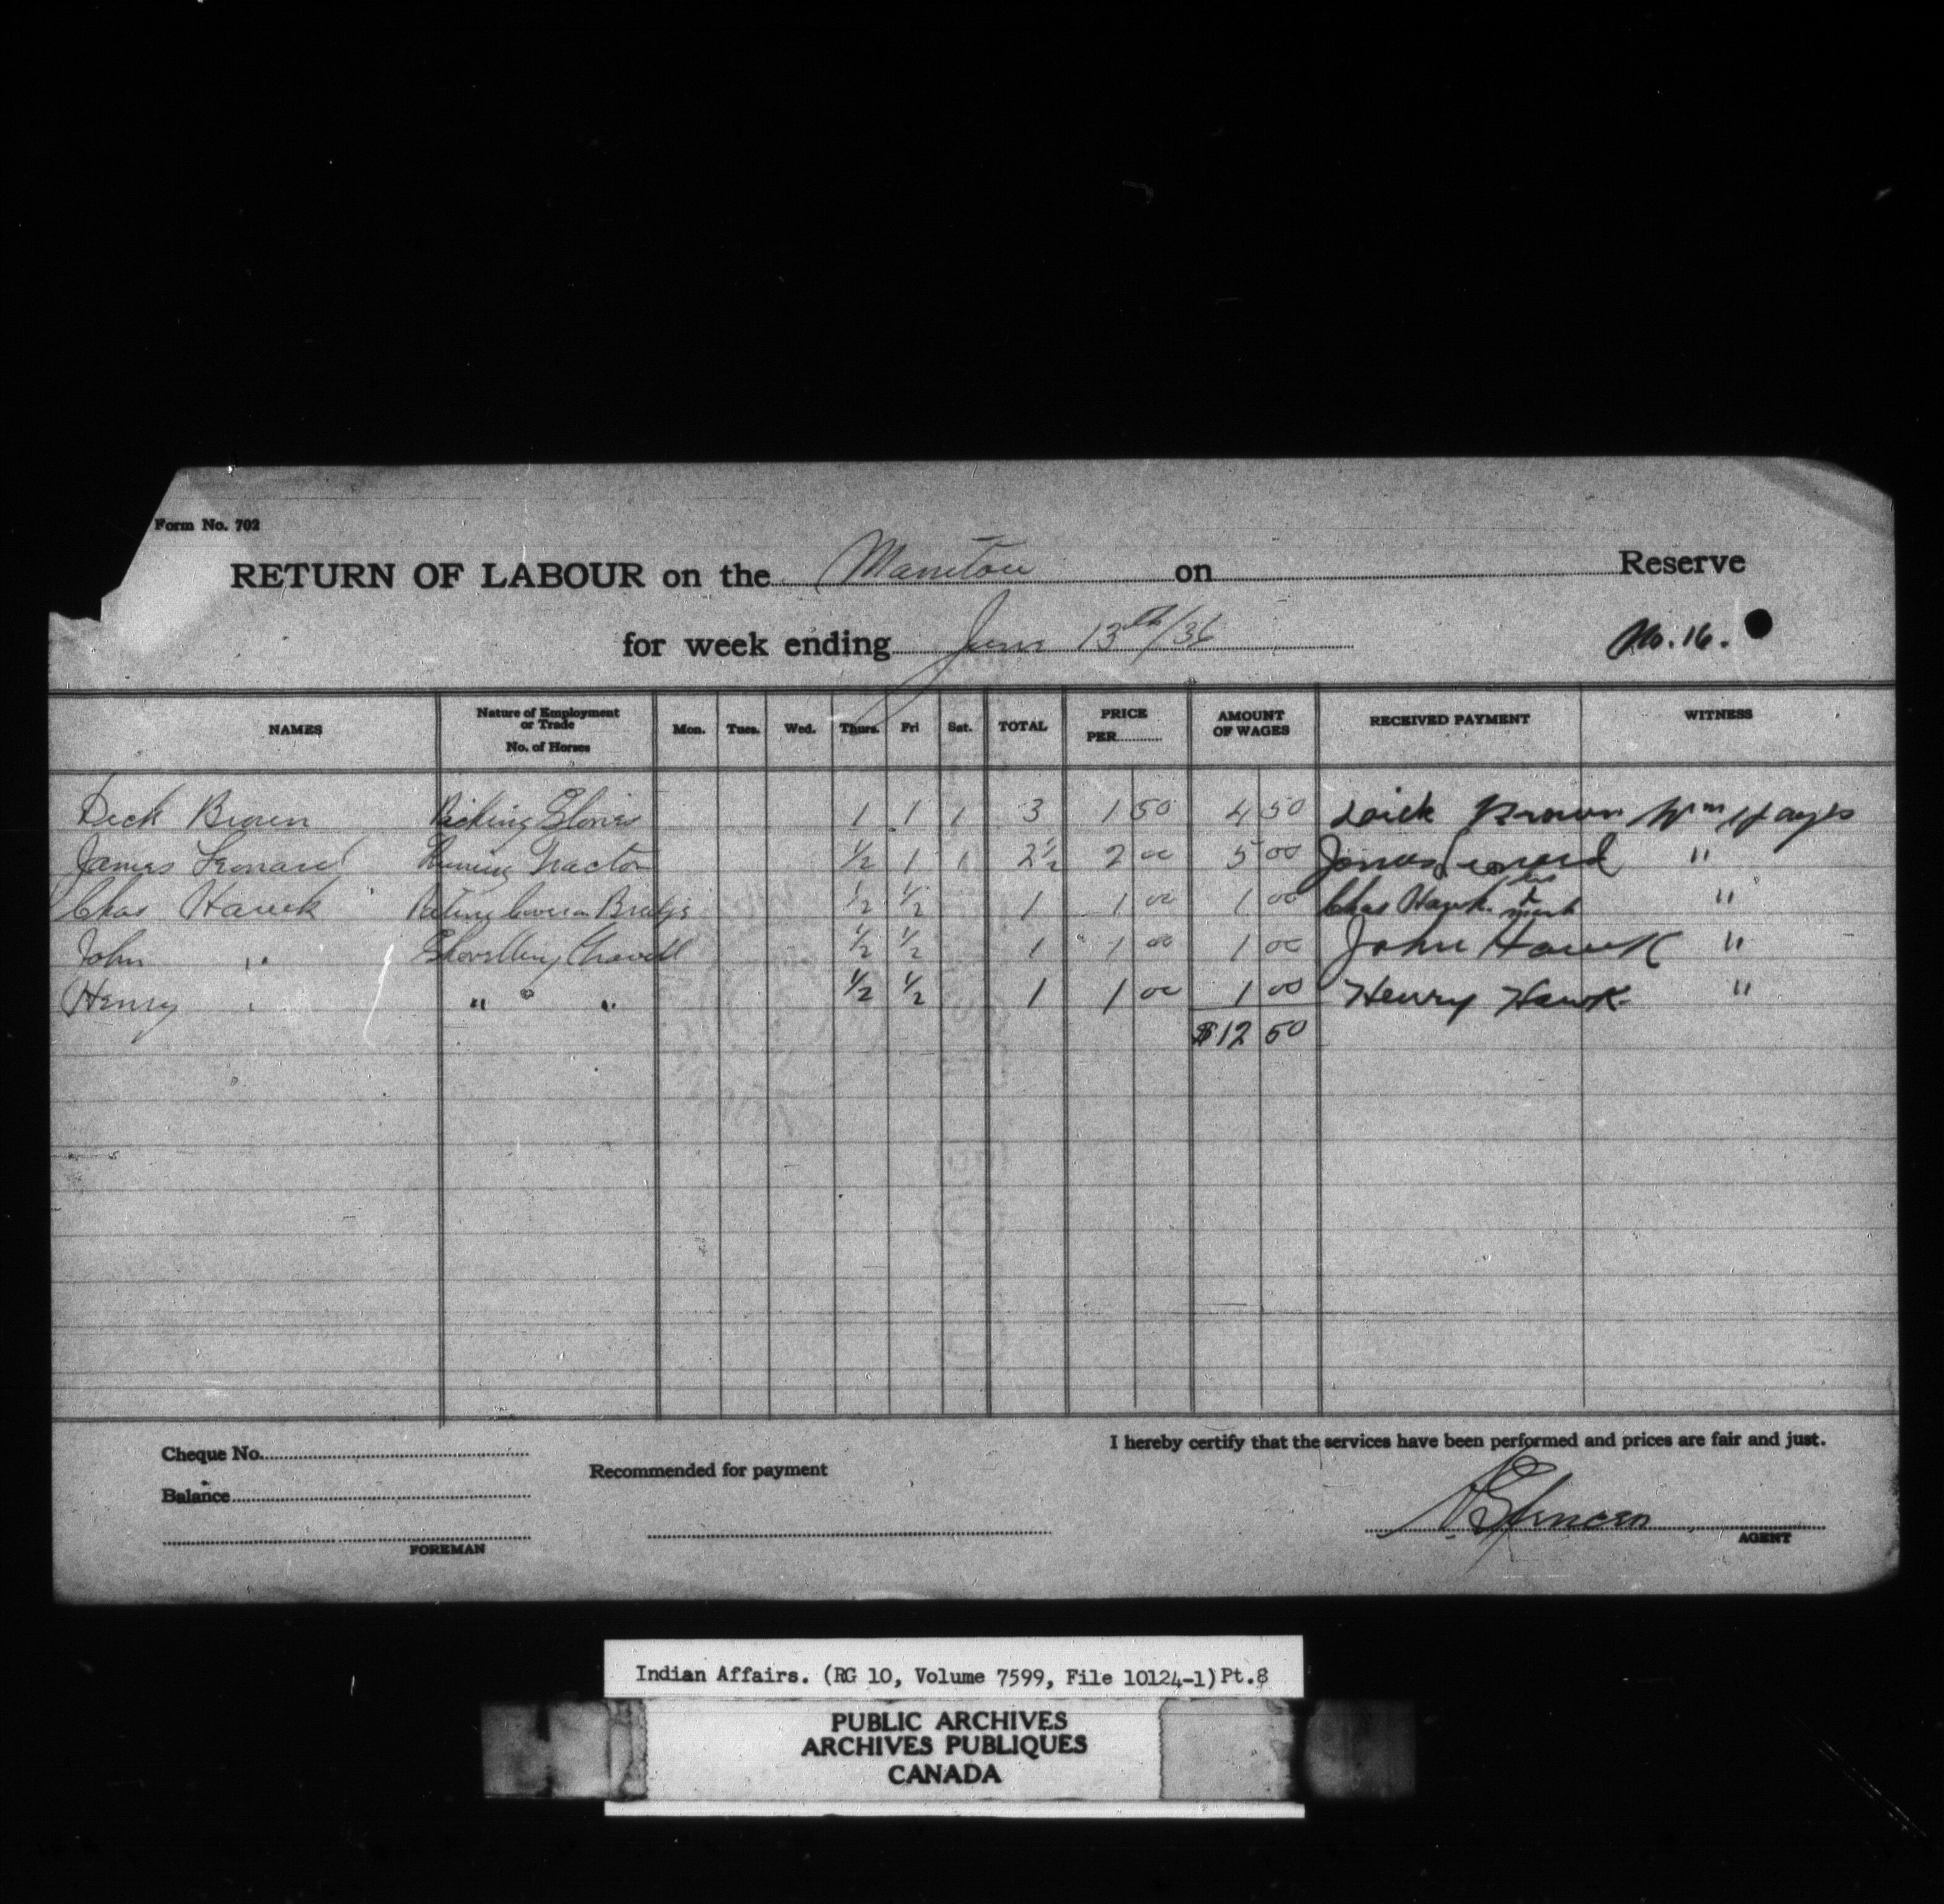 Form No. 702
RETURN OF LABOUR on the Manitou on Reserve
for week ending June 13th/36 No. 16.
NAMES Nature of Employment or Trade No. of Horses Mon. Tues. Wed. Thurs. Fri Sat. TOTAL PRICE PER AMOUNT OF WAGES RECEIVED PAYMENT WITNESS
Dick Brown Picking Stones 1 1 1 3 1 50 4 50 Dick Brown Wm Hayes
James Leonard Running Tractor 1/2 1 1 2 1/2 2 00 5 00 James Leonard "
Chas Hawk Bridge 1/2 1/2 1 1 00 1 00 Chas Hawk his x mark "
John " Shovelling Gravell 1/2 1/2 1 1 00 1 00 John Hawk "
Henry " " " " 1/2 1/2 1 1 00 1 00 Henry Hawk "
$12 50
I hereby certify that the services have been performed and prices are fair and just.
Cheque No.
Recommended for payment
Balance
Spencer
FOREMAN AGENT
Indian Affairs. (RG 10, Volume 7599, File 10124-1) Pt.8
PUBLIC ARCHIVES
ARCHIVES PUBLIQUES
CANADA